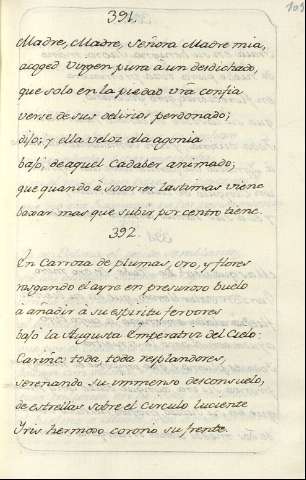 391.
103
Madre, Madre, Señora Madre mia,
acoged Virgen pura â un desdichado,
que solo en la piedad vrã confia
verse de sus delirios perdonado;
dijo; y ella veloz ala agonia
bajò, de aquel Cadaber animado;
que quando â socorrer lastimas viene
baxar mas que subir por centro tiene.
392.
En Carroza de plumas, oro, y flores
rasgando el ayre en presuroso buelo
a añadir a su espiritu fervores
bajò la Augusta Emperatriz del Cielo:
Cariño toda, toda resplandores,
serenando su immenso desconsuelo,
de estrellas sobre el circulo luciente
Yris hermoso coronò su frente.